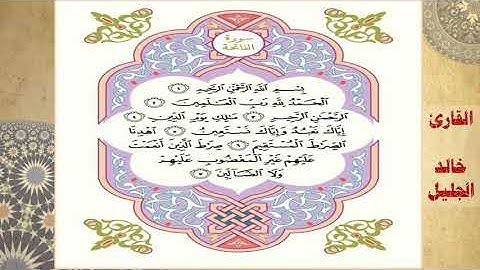 سورة
الفاتحة
بِسْمِ اللَّهِ الرَّحْمَٰنِ الرَّحِيمِ ١
الْحَمْدُ لِلَّهِ رَبِّ الْعَالَمِينَ ٢
الرَّحْمَٰنِ الرَّحِيمِ ٣ مَالِكِ يَوْمِ الدِّينِ ٤
إِيَّاكَ نَعْبُدُ وَإِيَّاكَ نَسْتَعِينُ ٥ اهْدِنَا
الصِّرَاطَ الْمُسْتَقِيمَ ٦ صِرَاطَ الَّذِينَ أَنْعَمْتَ
عَلَيْهِمْ غَيْرِ الْمَغْضُوبِ عَلَيْهِمْ
وَلَا الضَّالِّينَ ٧
القارئ
خالد
الجليل